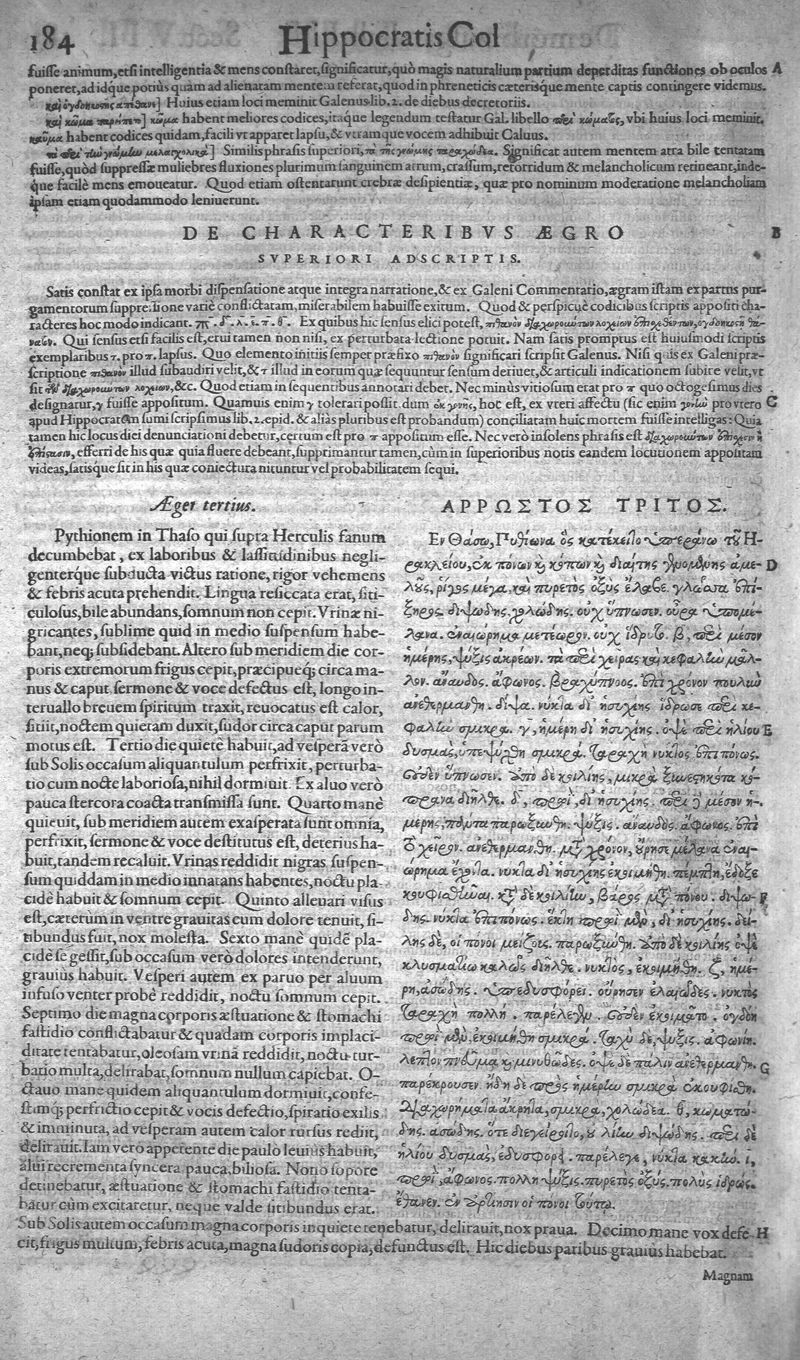 184 Hippocratis Col
fuisse animum, etsi intelligentia & mens constaret, significatur, quò magis naturalium partium deperditas functiones ob oculos A
poneret, ad idque potiùs quàm ad alienatam mentem referat, quod in phreneticis cæterisque mente captis contingere videmus.
Huius etiam loci meminit Galenus lib. 2. de diebus decretoriis.
habent meliores codices, itaque legendum testatur Gal. libello vbi huius loci meminit,
habent codices quidam, facili vt apparet lapsu, & vtramque vocem adhibuit Caluus.
Similis phrasis superiori, Significat autem mentem atra bile tentatam
fuisse, quòd suppressæ muliebres fluxiones plurimum sanguinem atrum, crassum, retorridum & melancholicum retineant, inde-
que facilè mens emoueatur. Quod etiam ostentarunt crebræ desipientiæ, quæ pro nominum moderatione melancholiam
ipsam etiam quodammodo leniuerunt.
DE CHARACTERIBVS ÆGRO B
SVPERIORI ADSCRIPTIS.
Satis constat ex ipsa morbi dispensatione atque integra narratione, & ex Galeni Commentario, ægram istam ex partus pur-
gamentorum suppressione variè conflictatam, miserabilem habuisse exitum. Quod & perspicuè codicibus scriptis appositi cha-
racteres hoc modo indicant. Ex quibus hic sensus elici potest,
Qui sensus etsi facilis est, erui tamen non nisi, ex perturbata lectione potuit. Nam satis promptus est huiusmodi scriptis
exemplaribus τ. pro π. lapsus. Quo elemento initiis semper præfixo πιθανὸν significari scripsit Galenus. Nisi quis ex Galeni præ-
scriptione πιθανὸν illud subaudiri velit, & τ illud in eorum quæ sequuntur sensum deriuet, & articuli indicationem subire velit, vt
sit &c. Quod etiam in sequentibus annotari debet. Nec minùs vitiosum erat pro π quo octogesimus dies
designatur, γ fuisse appositum. Quamuis enim γ tolerari possit, dum hoc est, ex vteri affectu (sic enim pro vtero C
apud Hippocratem sumi scripsimus lib. 2. epid. & aliàs pluribus est probandum) conciliatam huic mortem fuisse intelligas: Quia
tamen hic locus diei denunciationi debetur, certum est pro π appositum esse. Nec verò insolens phrasis est
efferri de his quæ quia fluere debeant, supprimantur tamen, cùm in superioribus notis eandem locutionem appositam
videas, satisque sit in his quæ coniectura nituntur vel probabilitatem sequi.
Æger tertius.
Pythionem in Thaso qui supra Herculis fanum
decumbebat, ex laboribus & lassitudinibus negli-
genterque subducta victus ratione, rigor vehemens
& febris acuta prehendit. Lingua resiccata erat, siti-
culosus, bile abundans, somnum non cepit. Vrinæ ni-
gricantes, sublime quid in medio suspensum habe-
bant, neq; subsidebant. Altero sub meridiem die cor-
poris extremorum frigus cepit, præcipueq; circa ma-
nus & caput, sermone & voce defectus est, longo in-
teruallo breuem spiritum traxit, reuocatus est calor,
sitiit, noctem quietam duxit, sudor circa caput parum
motus est. Tertio die quietè habuit, ad vesperā verò
sub Solis occasum aliquantulum perfrixit, perturba-
tio cum nocte laboriosa, nihil dormiuit. Ex aluo verò
pauca stercora coacta transmissa sunt. Quarto manè
quieuit, sub meridiem autem exasperata sunt omnia,
perfrixit, sermone & voce destitutus est, deterius ha-
buit, tandem recaluit. Vrinas reddidit nigras suspen-
sum quiddam in medio innatans habentes, noctu pla-
cidè habuit & somnum cepit. Quinto alleuari visus
est, cæterùm in ventre grauitas cum dolore tenuit, si-
tibundus fuit, nox molesta. Sexto manè quidē pla-
cidè se gessit, sub occasum verò dolores intenderunt,
grauiùs habuit. Vesperi autem ex paruo per aluum
infuso venter probè reddidit, noctu somnum cepit.
Septimo die magna corporis æstuatione & stomachi
fastidio conflictabatur & quadam corporis implaci-
ditate tentabatur, oleosam vrinā reddidit, noctu tur-
batio multa, delirabat, somnum nullum capiebat. O-
ctauo mane quidem aliquantulum dormiuit, confe-
stimq; perfrictio cepit & vocis defectio, spiratio exilis
& imminuta, ad vesperam autem calor rursus rediit,
delirauit. Iam vero appetente die paulo leuius habuit,
alui recrementa syncera pauca, biliosa. Nono sopore
detinebatur, æstuatione & stomachi fastidio tenta-
batur cùm excitaretur, neque valde sitibundus erat.
ΑΡΡΩΣΤΟΣ ΤΡΙΤΟΣ.
Εν Θάσῳ, Πυθίωνα ὃς κατέκειτο ὑπεράνω τοῦ Η-
ρακλείου, ἐκ πόνων καὶ κόπων καὶ διαίτης γενομένης ἀμε- D
λοῦς, ῥῖγος μέγα, καὶ πυρετὸς ὀξὺς ἔλαβε. γλῶσσα ἐπί-
ξηρος. διψώδης, χολώδης. οὐχ ὕπνωσεν. οὖρα ὑπομέ-
λανα. ἐναιώρημα μετέωρον. οὐχ ἵδρυτο. β, περὶ μέσον
ἡμέρης, ψῦξις ἀκρέων. τὰ περὶ χεῖρας καὶ κεφαλὴν μᾶλ-
λον. ἄναυδος. ἄφωνος. βραχύπνοος. ἐπὶ χρόνον πουλὺν
ἀνεθερμάνθη. δίψα. νύκτα δι' ἡσυχίης ἵδρωσε περὶ κε-
φαλὴν σμικρά. γ, ἡμέρη δι' ἡσυχίης. ὀψὲ περὶ ἡλίου E
δυσμὰς, ὑπεψύχθη σμικρά. ταραχὴ νυκτὸς ἐπιπόνως.
οὐδὲν ὕπνωσεν. ἀπὸ δὲ κοιλίης, μικρὰ ξυνεστηκότα κό-
πρανα διῆλθε. δ, πρωῒ, δι' ἡσυχίης. περὶ δὲ μέσον ἡ-
μέρης, πάντα παρωξύνθη. ψῦξις. ἄναυδος. ἄφωνος. ἐπὶ
τὸ χεῖρον. ἀνεθερμάνθη. μετὰ χρόνον, οὔρησε μέλανα ἐναι-
ώρημα ἔχοντα. νύκτα δι' ἡσυχίης ἐκοιμήθη. πέμπτη, ἔδοξε
κουφισθῆναι. κατὰ δὲ κοιλίην, βάρος μετὰ πόνου. διψώ- F
δης. νύκτα ἐπιπόνως. ἕκτη πρωῒ μὲν, δι' ἡσυχίης. δεί-
λης δὲ, οἱ πόνοι μείζους. παρωξύνθη. ἀπὸ δὲ κοιλίης ὀψὲ
κλυσματίῳ καλῶς διῆλθε. νυκτὸς, ἐκοιμήθη. ζ, ἡμέ-
ρη, ἀσώδης. ὑπεδυσφόρει. οὔρησεν ἐλαιῶδες. νυκτὸς
ταραχὴ πολλή. παρέλεγεν. οὐδὲν ἐκοιμᾶτο. ὀγδόη
πρωῒ μὲν, ἐκοιμήθη σμικρά. ταχὺ δὲ, ψῦξις. ἀφωνίη.
λεπτὸν πνεῦμα καὶ μινυθῶδες. ὀψὲ δὲ πάλιν ἀνεθερμάνθη. G
παρέκρουσεν. ἤδη δὲ πρὸς ἡμέρην σμικρὰ ἐκουφίσθη.
διαχωρήματα ἄκρητα, σμικρὰ, χολώδεα. θ, κωματώ-
δης. ἀσώδης. ὅτε διεγείροιτο, οὐ λίην διψώδης. περὶ δὲ
ἡλίου δυσμὰς, ἐδυσφόρει. παρέλεγε, νύκτα κακήν. ι,
πρωῒ, ἄφωνος. πολλὴ ψῦξις. πυρετὸς ὀξύς. πολὺς ἱδρώς.
ἔθανεν. ἐν ἀρτίῃσιν οἱ πόνοι τούτῳ.
Sub Solis autem occasum magna corporis inquiete tenebatur, delirauit, nox praua. Decimo mane vox defe- H
cit, frigus multum, febris acuta, magna sudoris copia, defunctus est. Hic diebus paribus grauiùs habebat.
Magnam